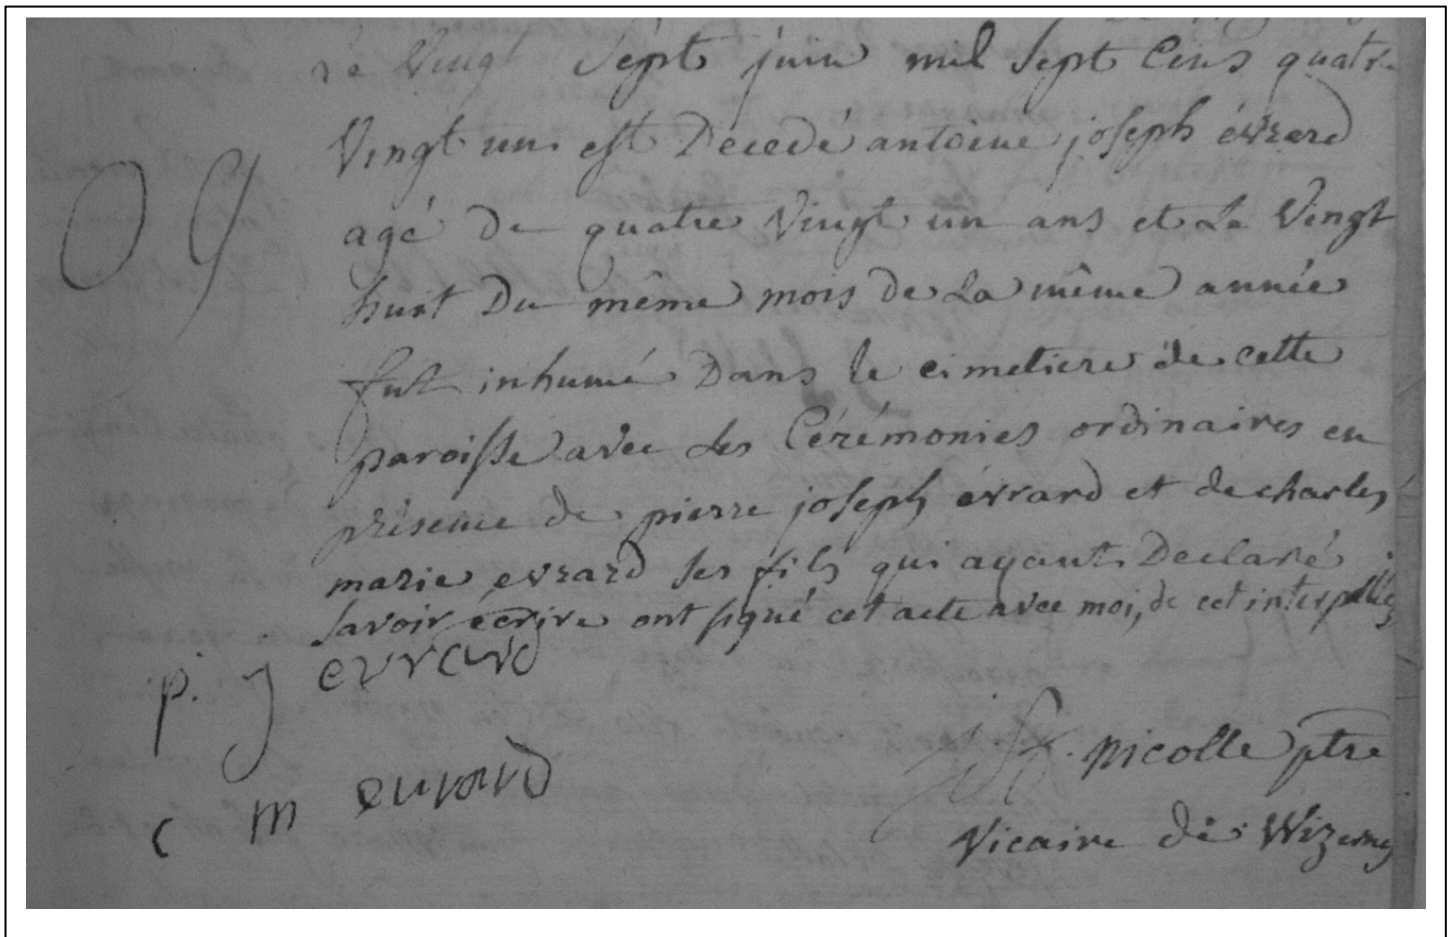 Le Vingt Sept juin mil Sept Cens quatre
Vingt un est Decedé antoine joseph évrard
agé De quatre Vingt un ans et Le Vingt
huit Du même mois de La même année
fut inhumé Dans le cimetiere de cette
paroisse avec Les Cérémonies ordinaires en
présence de pierre joseph évrard et de charles
marie evrard ses fils qui ayant Declaré
savoir écrire ont signé cet acte avec moi, de cet interpellés
p. j evrard
j. f. nicolle ptre
c m evrard
Vicaire de Wizernes